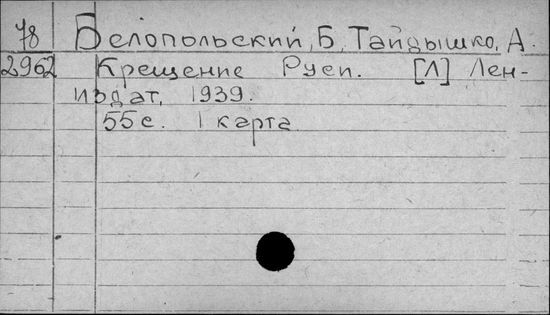 78 Белопольский, Б, Тайдышко, А.
2962 Крещение Руси. [Л] Лен-
издат, 1939.
55 с. 1 карта